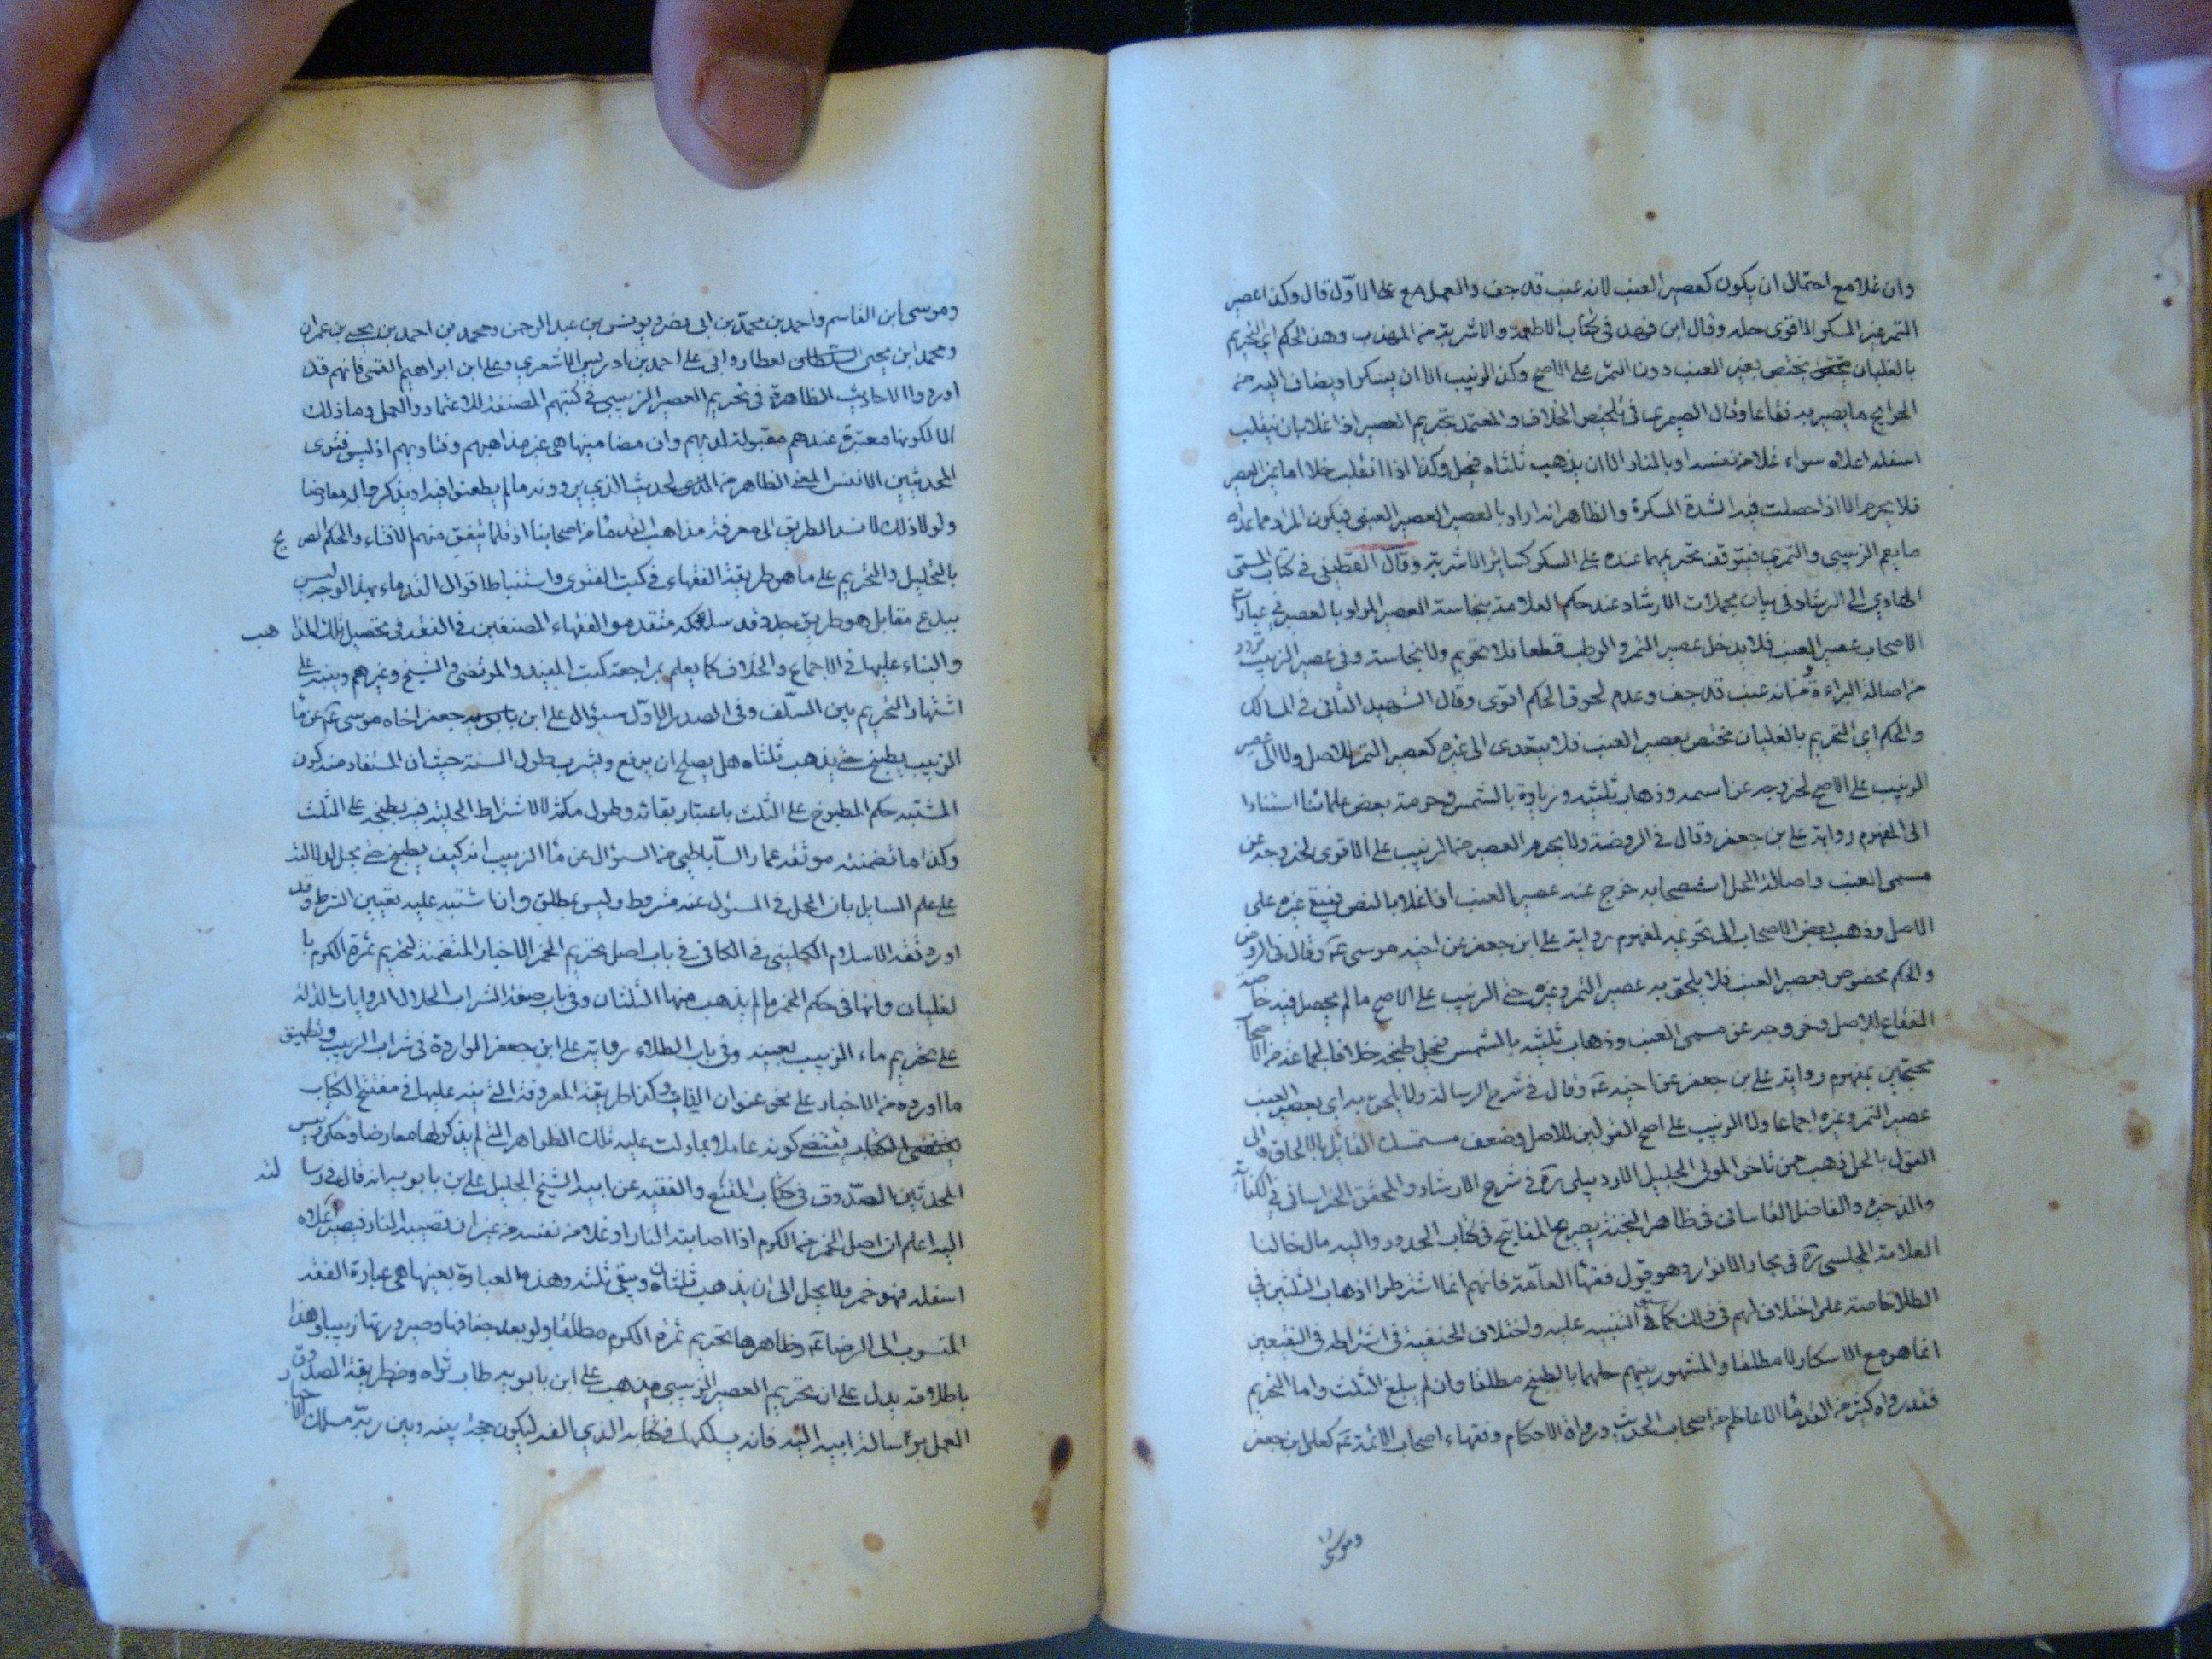 وان غلا مع احتمال ان يكون كعصير العنب لانه عنب قد جف والعمل مع على الاول قال وكذا عصير
التمر غير المسكر الاقوى حله وقال ابن فهد في كتاب الاطعمة والاشربة من المهذب وهذا الحكم اي التحريم
بالغليان يختص بعصير العنب دون التمر على الاصح وكذا الزبيب الا ان يسكر او يضاف اليه من
الحوايج ما يصير به فقاعا وقال الصيمرى في تلخيص الخلاف والمعتمد تحريم العصير اذا غلا بان ينقلب
اسفله اعلاه سواء غلا من نفسه او بالنار الا ان يذهب ثلثاه فيحل وكذا اذا انقلب خلا اما غير العصير
فلا يحرم الا اذا حصلت فيه الشدة المسكرة والظاهر انه اراد بالعصير العصير العنبى فيكون المراد مما عداه
ما يعم الزبيبى والتمرى فيتوقف تحريمهما عنده على السكر كسائر الاشربة وقال القطيفى في كتاب المسمى
الهادي الى الرشاد في بيان مجملات الارشاد عند حكم العلامة بنجاسة العصير المراد بالعصير في عبارات
الاصحاب عصير العنب فلا يدخل عصير التمر والرطب قطعا فلا تحريم ولا نجاسة وفى عصير الزبيب تردد
من اصالة البراءة ومن انه عنب قد جف وعدم لحوق الحكم اقوى وقال الشهيد الثاني في المسالك
والحكم اي التحريم بالغليان مختص بعصير العنب فلا يتعدى الى غيره كعصير التمر للاصل ولا الى عصير
الزبيب على الاصح لخروجه عن اسمه وذهاب ثلثيه وزيادة بالشمس وحرمه بعض علمائنا استنادا
الى مفهوم رواية على بن جعفر وقال في الروضة ولا يحرم العصير من الزبيب على الاقوى لخروجه عن
مسمى العنب واصالة الحل استصحابه خرج عنه عصير العنب اذا غلا بالنص فيبقى غيره على
الاصل وذهب بعض الاصحاب الى تحريمه لمفهوم رواية على ابن جعفر عن اخيه موسى عه وقال في الروض
والحكم مخصوص بعصير العنب فلا يلحق به عصير التمر وغيره حتى الزبيب على الاصح ما لم يحصل فيه خاصية
الفقاع للاصل وخروجه عن مسمى العنب وذهاب ثلثيه بالشمس فيحل طبخه خلافا لجماعة من الاصحاب
محتجين بمفهوم رواية على بن جعفر عن اخيه عه وقال في شرح الرسالة ولا يلحق به اي بعصير العنب
عصير التمر وغيره اجماعا ولا الزبيب على اصح القولين للاصل وضعف مستمسك القائل بالالحاق والى
القول بالحل ذهب من تاخر المولى الجليل الاردبيلى ره في شرح الارشاد والمحقق الخراسانى في الكفاية
والذخيره والفاضل القاسانى في ظاهر النخبة وصريح المفاتيح في كتاب الحدود واليه مال خالنا
العلامة المجلسى ره في بحار الانوار وهو قول فقهاء العامة فانهم انما اشترطوا اذهاب الثلثين في
الطلا خاصة على اختلاف لهم في ذلك كما سبق التنبيه عليه واختلاف الحنفية في اشتراطه في النقيعين
انما هو مع الاسكار لا مطلقا والمشهور بينهم حلهما بالطبخ مطلقا وان لم يبلغ الثلث واما التحريم
فقد رواه كثير من القدماء الاعاظم من اصحاب الحديث ورواة الاحكام وفقهاء اصحاب الائمة عه كعلى ابن جعفر
وموسى
وموسى ابن القاسم واحمد بن محمد بن ابى نصر ويونس بن عبد الرحمن ومحمد بن احمد بن يحيى بن عمران
ومحمد ابن يحيى العطار وابى على احمد بن ادريس الاشعري وعلى ابن ابراهيم القمى فانهم قد
اوردوا الاحاديث الظاهرة في تحريم العصير الزبيبى في كتبهم المصنفة للاعتماد والعمل وما ذلك
الا لكونها معتبرة عندهم مقبولة لديهم وان مضامينها هى عين مذاهبهم وفتاويهم اذ ليس فتوى
المحدثين الا نفس المعنى الظاهر من الحديث الذي يروونه ما لم يطعنوا فيه او يذكروا له معارضا
ولولا ذلك لانسد الطريق الى معرفة مذاهب القدماء من اصحابنا اذ قلما يتفق منهم الافتاء والحكم الصريح
بالتحليل والتحريم على ما هو طريقة الفقهاء في كتب الفتوى واستنباط اقوال القدماء بهذا الوجه ليس
ببدع مقابل هو طريق جدد قد سلكه متقدمو الفقهاء المصنفين في الفقه في تحصيل تلك المذاهب
والبناء عليها في الاجماع والخلاف كما يعلم بمراجعة كتب المفيد والمرتضى والشيخ وغيرهم وينبه على
اشتهار التحريم بين السلف وفى الصدر الاول سؤال على ابن جعفر اخاه موسى عه عن ماء
الزبيب يطبخ حتى يذهب ثلثاه هل يصلح ان يرفع ويشرب طول السنة حيث ان المستفاد منه كون
المشتبه حكم المطبوخ على الثلث باعتبار بقائه وطول مكثه لا لاشتراط الحلية فيه بطبخه على الثلث
وكذا ما تضمنته موثقة عمار الساباطي من السؤال عن ماء الزبيب انه كيف يطبخ حتى يحل لدلالته
على علم السايل بان الحل في المسئول عنه مشروط وليس بمطلق وان اشتبه عليه تعيين الشرط وقد
اورد ثقة الاسلام الكلينى في الكافى في باب اصل تحريم الخمر الاخبار المتضمنة لتحريم ثمرة الكرم با
لغليان وانها في حكم الخمر ما لم يذهب منها الثلثان وفى باب صفة الشراب الحلال الروايات الدالة
على تحريم ماء الزبيب بعينه وفى باب الطلاء رواية على ابن جعفر الواردة في شراب الزبيب وتطبيق
ما اورده من الاخبار على نحو عنوان الباب وكذا طريقة المعروفة التى نبه عليها في مفتتح الكتاب
يقتضى كونه عاملا بما دلت عليه تلك الظواهر التى لم يذكر لها معارضا وحكى رئيس
المحدثين الصدوق في كتاب المقنع والفقيه عن ابيه الشيخ الجليل على بن بابويه انه قال في رسالته
اليه اعلم ان اصل الخمر من الكرم اذا اصابته النار او غلا من نفسه من غير ان تصيبه النار فيصير اعلاه
اسفله فهو خمر ولا يحل الى ان يذهب ثلثاه ويبقى ثلثه وهذه العبارة بعينها هى عبارة الفقه
المنسوب الى الرضا عه وظاهرها تحريم ثمرة الكرم مطلقا ولو بعد جفافها وصيرورتها زبيبا وهذا
باطلاقه يدل على ان تحريم العصير الزبيبى مذهب على ابن بابويه طاب ثراه وهو طريقة الصدوق
العمل برسالة ابيه اليه فانه يسلكها في كتابه الذي الفه ليكون حجة بينه وبين ربه مسلك الاخبار